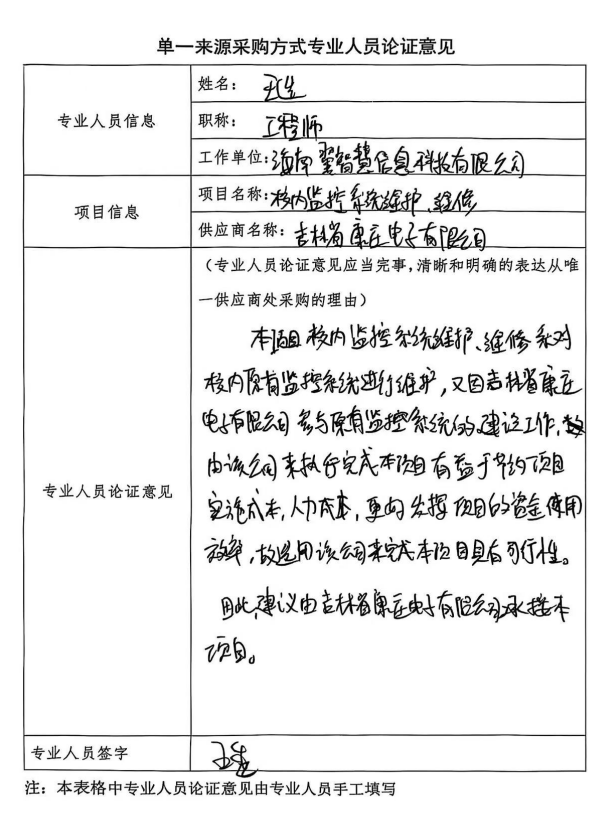 单一来源采购方式专业人员论证意见
专业人员信息
姓名：
职称：工程师
工作单位：海南翼智慧信息科技有限公司
项目信息
项目名称：校内监控系统维护、维修
供应商名称：吉林省康庄电子有限公司
专业人员论证意见
（专业人员论证意见应当完事，清晰和明确的表达从唯
一供应商处采购的理由）
本项目校内监控系统维护、维修系对
校内原有监控系统进行维护，又因吉林省康庄
电子有限公司参与原有监控系统的建设工作，
由该公司来执行完成本项目有益于节约项目
实施成本，人力成本，更好发挥项目的资金使用
效率，故选用该公司来完成本项目具有可行性。
因此，建议由吉林省康庄电子有限公司承接本
项目。
专业人员签字
注：本表格中专业人员论证意见由专业人员手工填写